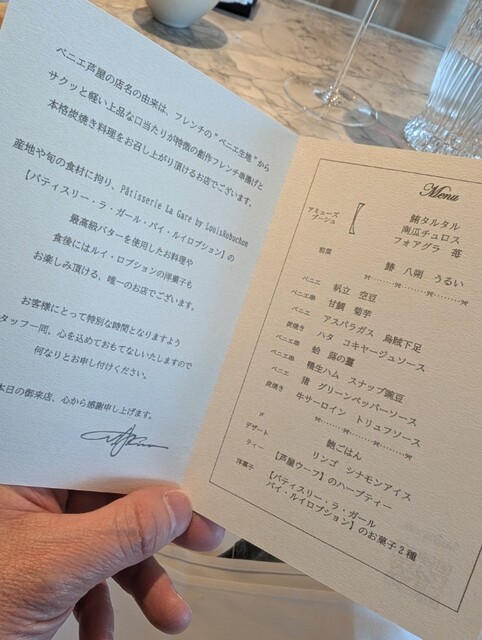 ベニエ芦屋の店名の由来は、フレンチの"ベニエ生地"から
サクッと軽い上品な口当たりが特徴の創作フレンチ串揚げと
本格炭焼き料理をお召し上がり頂けるお店でございます。
産地や旬の食材に拘り、Pâtisserie La Gare by Louiskobuchon
【パティスリー・ラ・ガール・バイ・ルイロブション】の
最高級バターを使用したお料理や
食後にはルイ・ロブションの洋菓子も
お楽しみ頂ける、唯一のお店でございます。
お客様にとって特別な時間となりますよう
タッフ一同、心を込めておもてなしいたしますので
何なりとお申し付けください。
本日の御来店、心から感謝申し上げます。
Menu
アミューズ
ブーシュ
鮪タルタル
南瓜チュロス
フォアグラ 苺
前菜 鰆 八朔 うるい
ベニエ 帆立 空豆
ベニエ串 甘鯛 菊芋
ベニエ アスパラガス 烏賊下足
炭焼き ハタ コキヤージュソース
ベニエ串 蛤 蕗の薹
ベニエ串 精生ハム スナップ豌豆
ベニエ 猪 グリーンペッパーソース
炭焼き 牛サーロイン トリュフソース
〆 鮑ごはん
デザート リンゴ シナモンアイス
ティー 【芦屋ウーフ】のハーブティー
洋菓子 【パティスリー・ラ・ガール
バイ・ルイロブション】のお菓子2種